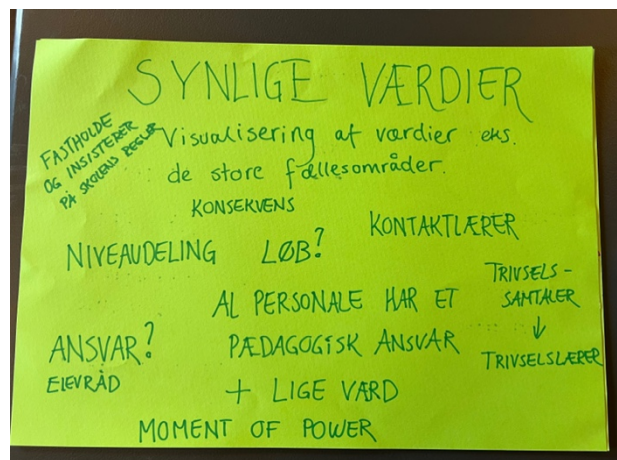 SYNLIGE VÆRDIER
FASTHOLDE
OG INSISTERER
PÅ SKOLENS REGLER
Visualisering af værdier eks.
de store fællesområder.
KONSEKVENS
KONTAKTLÆRER
NIVEAUDELING
LØB?
TRIVSELS-
SAMTALER
↓
TRIVSELSLÆRER
AL PERSONALE HAR ET
PÆDAGOGISK ANSVAR
+ LIGE VÆRD
ANSVAR?
ELEVRÅD
MOMENT OF POWER